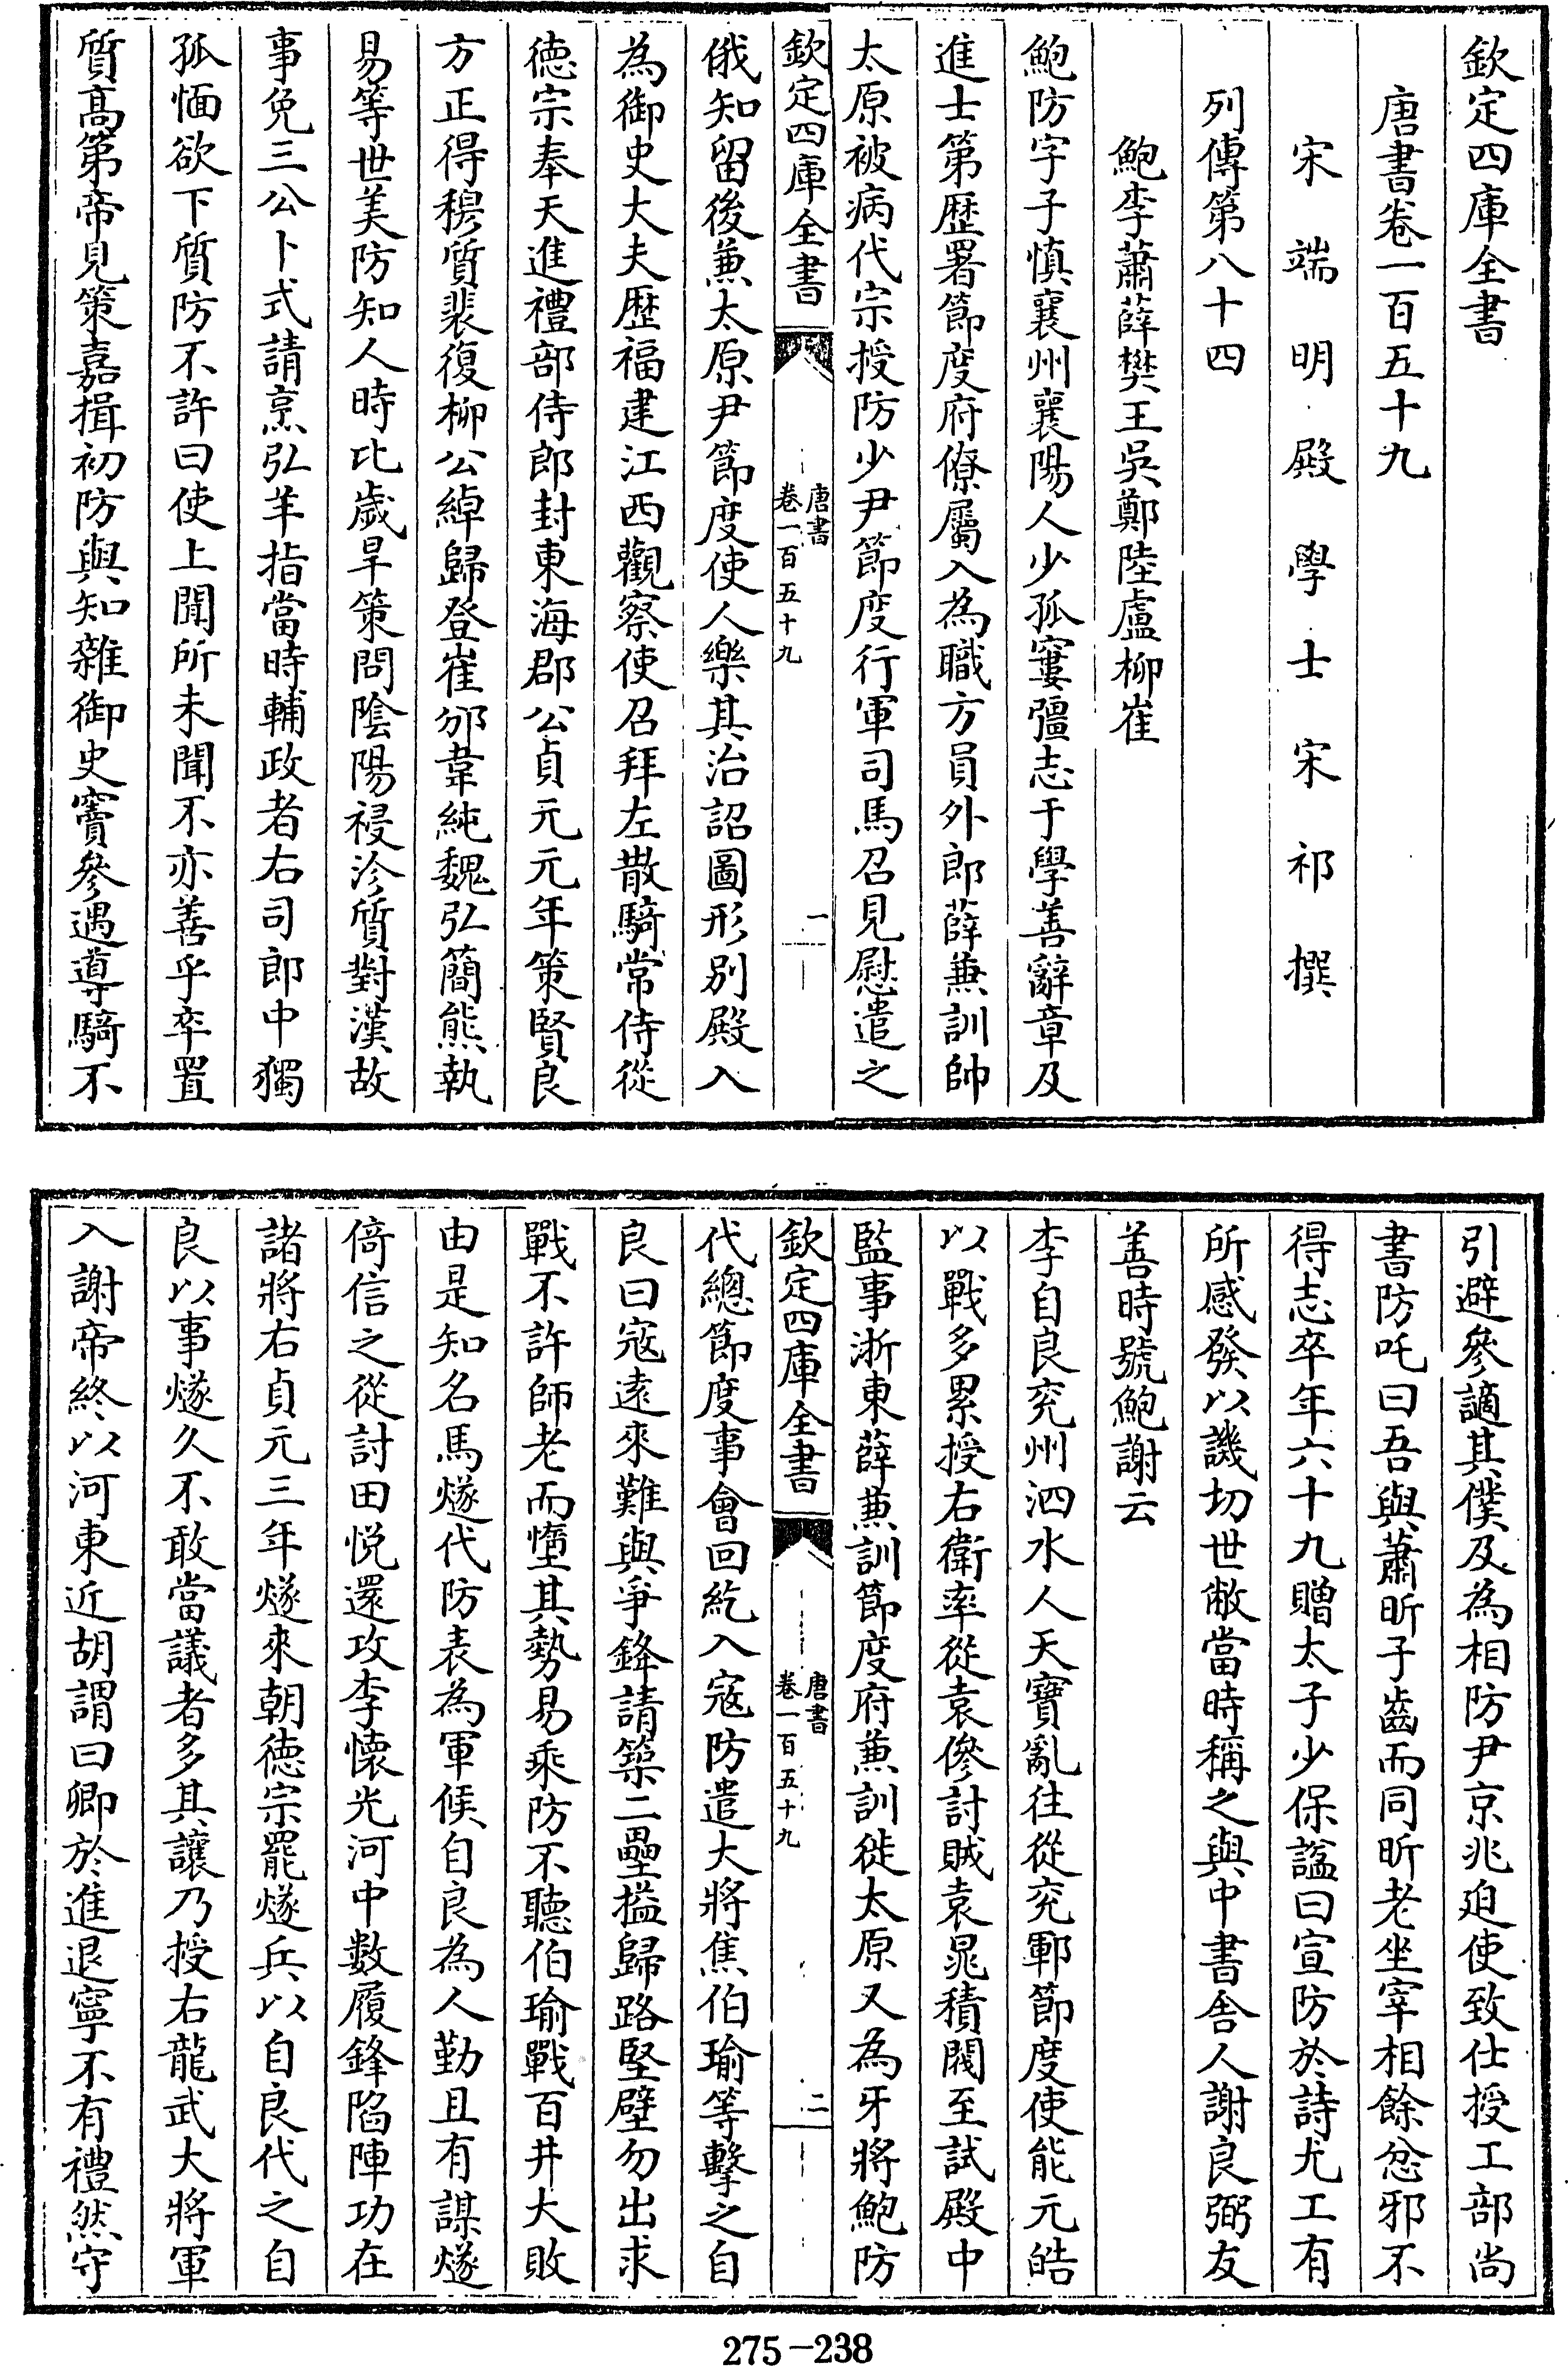 欽定四庫全書
唐書卷一百五十九
宋端明殿學士宋祁撰
列傳第八十四
鮑李蕭薛樊王吳鄭陸盧柳崔
鮑防字子慎襄州襄陽人少孤窶彊志于學善辭章及
進士第歴署節度府僚屬入為職方員外郎薛兼訓帥
太原被病代宗授防少尹節度行軍司馬召見慰遣之
欽定四庫全書
唐書
卷一百五十九
一
俄知留後兼太原尹節度使人樂其治詔圖形别殿入
為御史大夫歴福建江西觀察使召拜左散騎常侍從
德宗奉天進禮部侍郎封東海郡公貞元元年策賢良
方正得穆質裴復柳公綽歸登崔邠韋純魏弘簡熊執
易等世美防知人時比歲旱策問陰陽祲沴質對漢故
事免三公卜式請烹弘羊指當時輔政者右司郎中獨
孤愐欲下質防不許曰使上聞所未聞不亦善乎卒置
質高第帝見策嘉揖初防與知雜御史竇參遇導騎不
引避參謫其僕及為相防尹京兆迫使致仕授工部尚
書防吒曰吾與蕭昕子齒而同昕老坐宰相餘忿邪不
得志卒年六十九贈太子少保諡曰宣防於詩尤工有
所感發以譏切世敝當時稱之與中書舍人謝良弼友
善時號鮑謝云
李自良兖州泗水人天寶亂往從兖鄆節度使能元皓
以戰多累授右衛率從袁傪討賊袁晁積閥至試殿中
監事浙東薛兼訓節度府兼訓徙太原又為牙將鮑防
欽定四庫全書
唐書
卷一百五十九
二
代總節度事會回紇入寇防遣大將焦伯瑜等擊之自
良曰寇遠來難與爭鋒請築二壘搤歸路堅壁勿出求
戰不許師老而墯其勢易乘防不聽伯瑜戰百井大敗
由是知名馬燧代防表為軍候自良為人勤且有謀燧
倚信之從討田悦還攻李懷光河中數履鋒陷陣功在
諸將右貞元三年燧來朝德宗罷燧兵以自良代之自
良以事燧久不敢當議者多其讓乃授右龍武大將軍
入謝帝終以河東近胡謂曰卿於進退寧不有禮然守
275-238